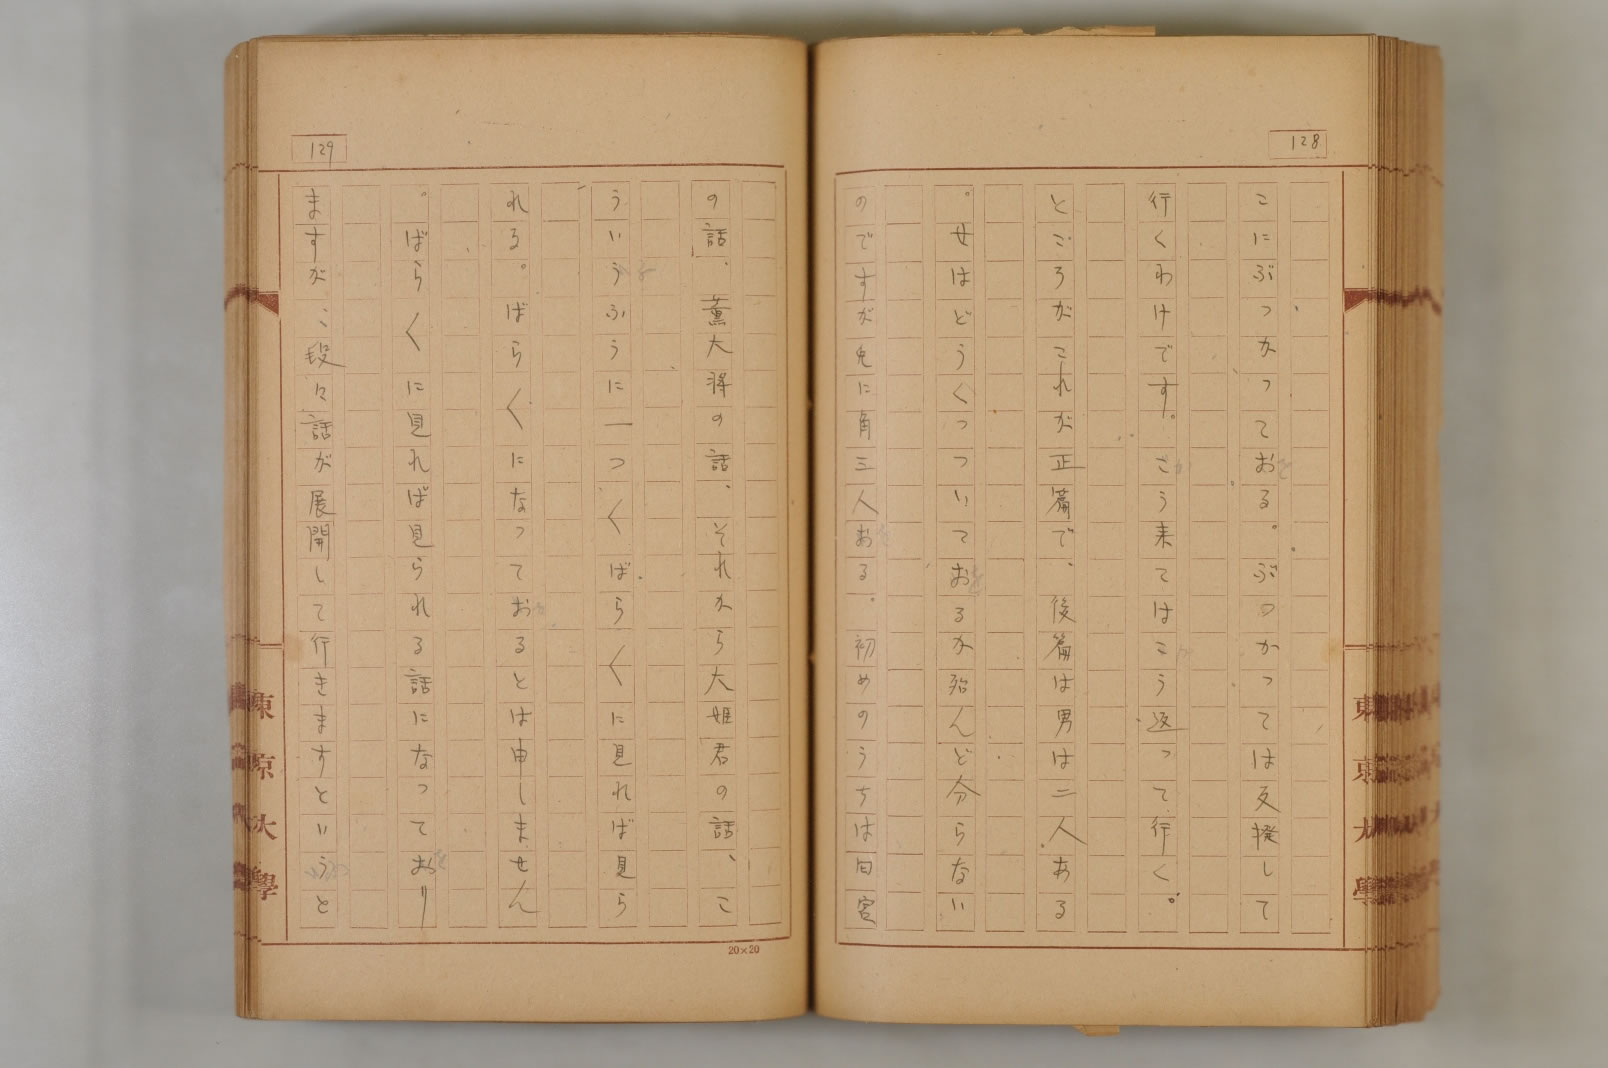 128
こにぶつかっておる。ぶつかっては反撥して
行くわけです。こう来てはこう返って行く。
ところがこれが正篇で、後篇は男は二人ある
。女はどうくっついておるか殆んど分らない
のですが兎に角三人ある。初めのうちは匂宮
129
の話、薫大将の話、それから大姫君の話、こ
ういうふうに一つ〱ばら〱に見れば見ら
れる。ばら〱になっておるとは申しません
。ばら〱に見れば見られる話になっており
ますが、段々話が展開して行きますというと
20×20
東京大學
東京大學